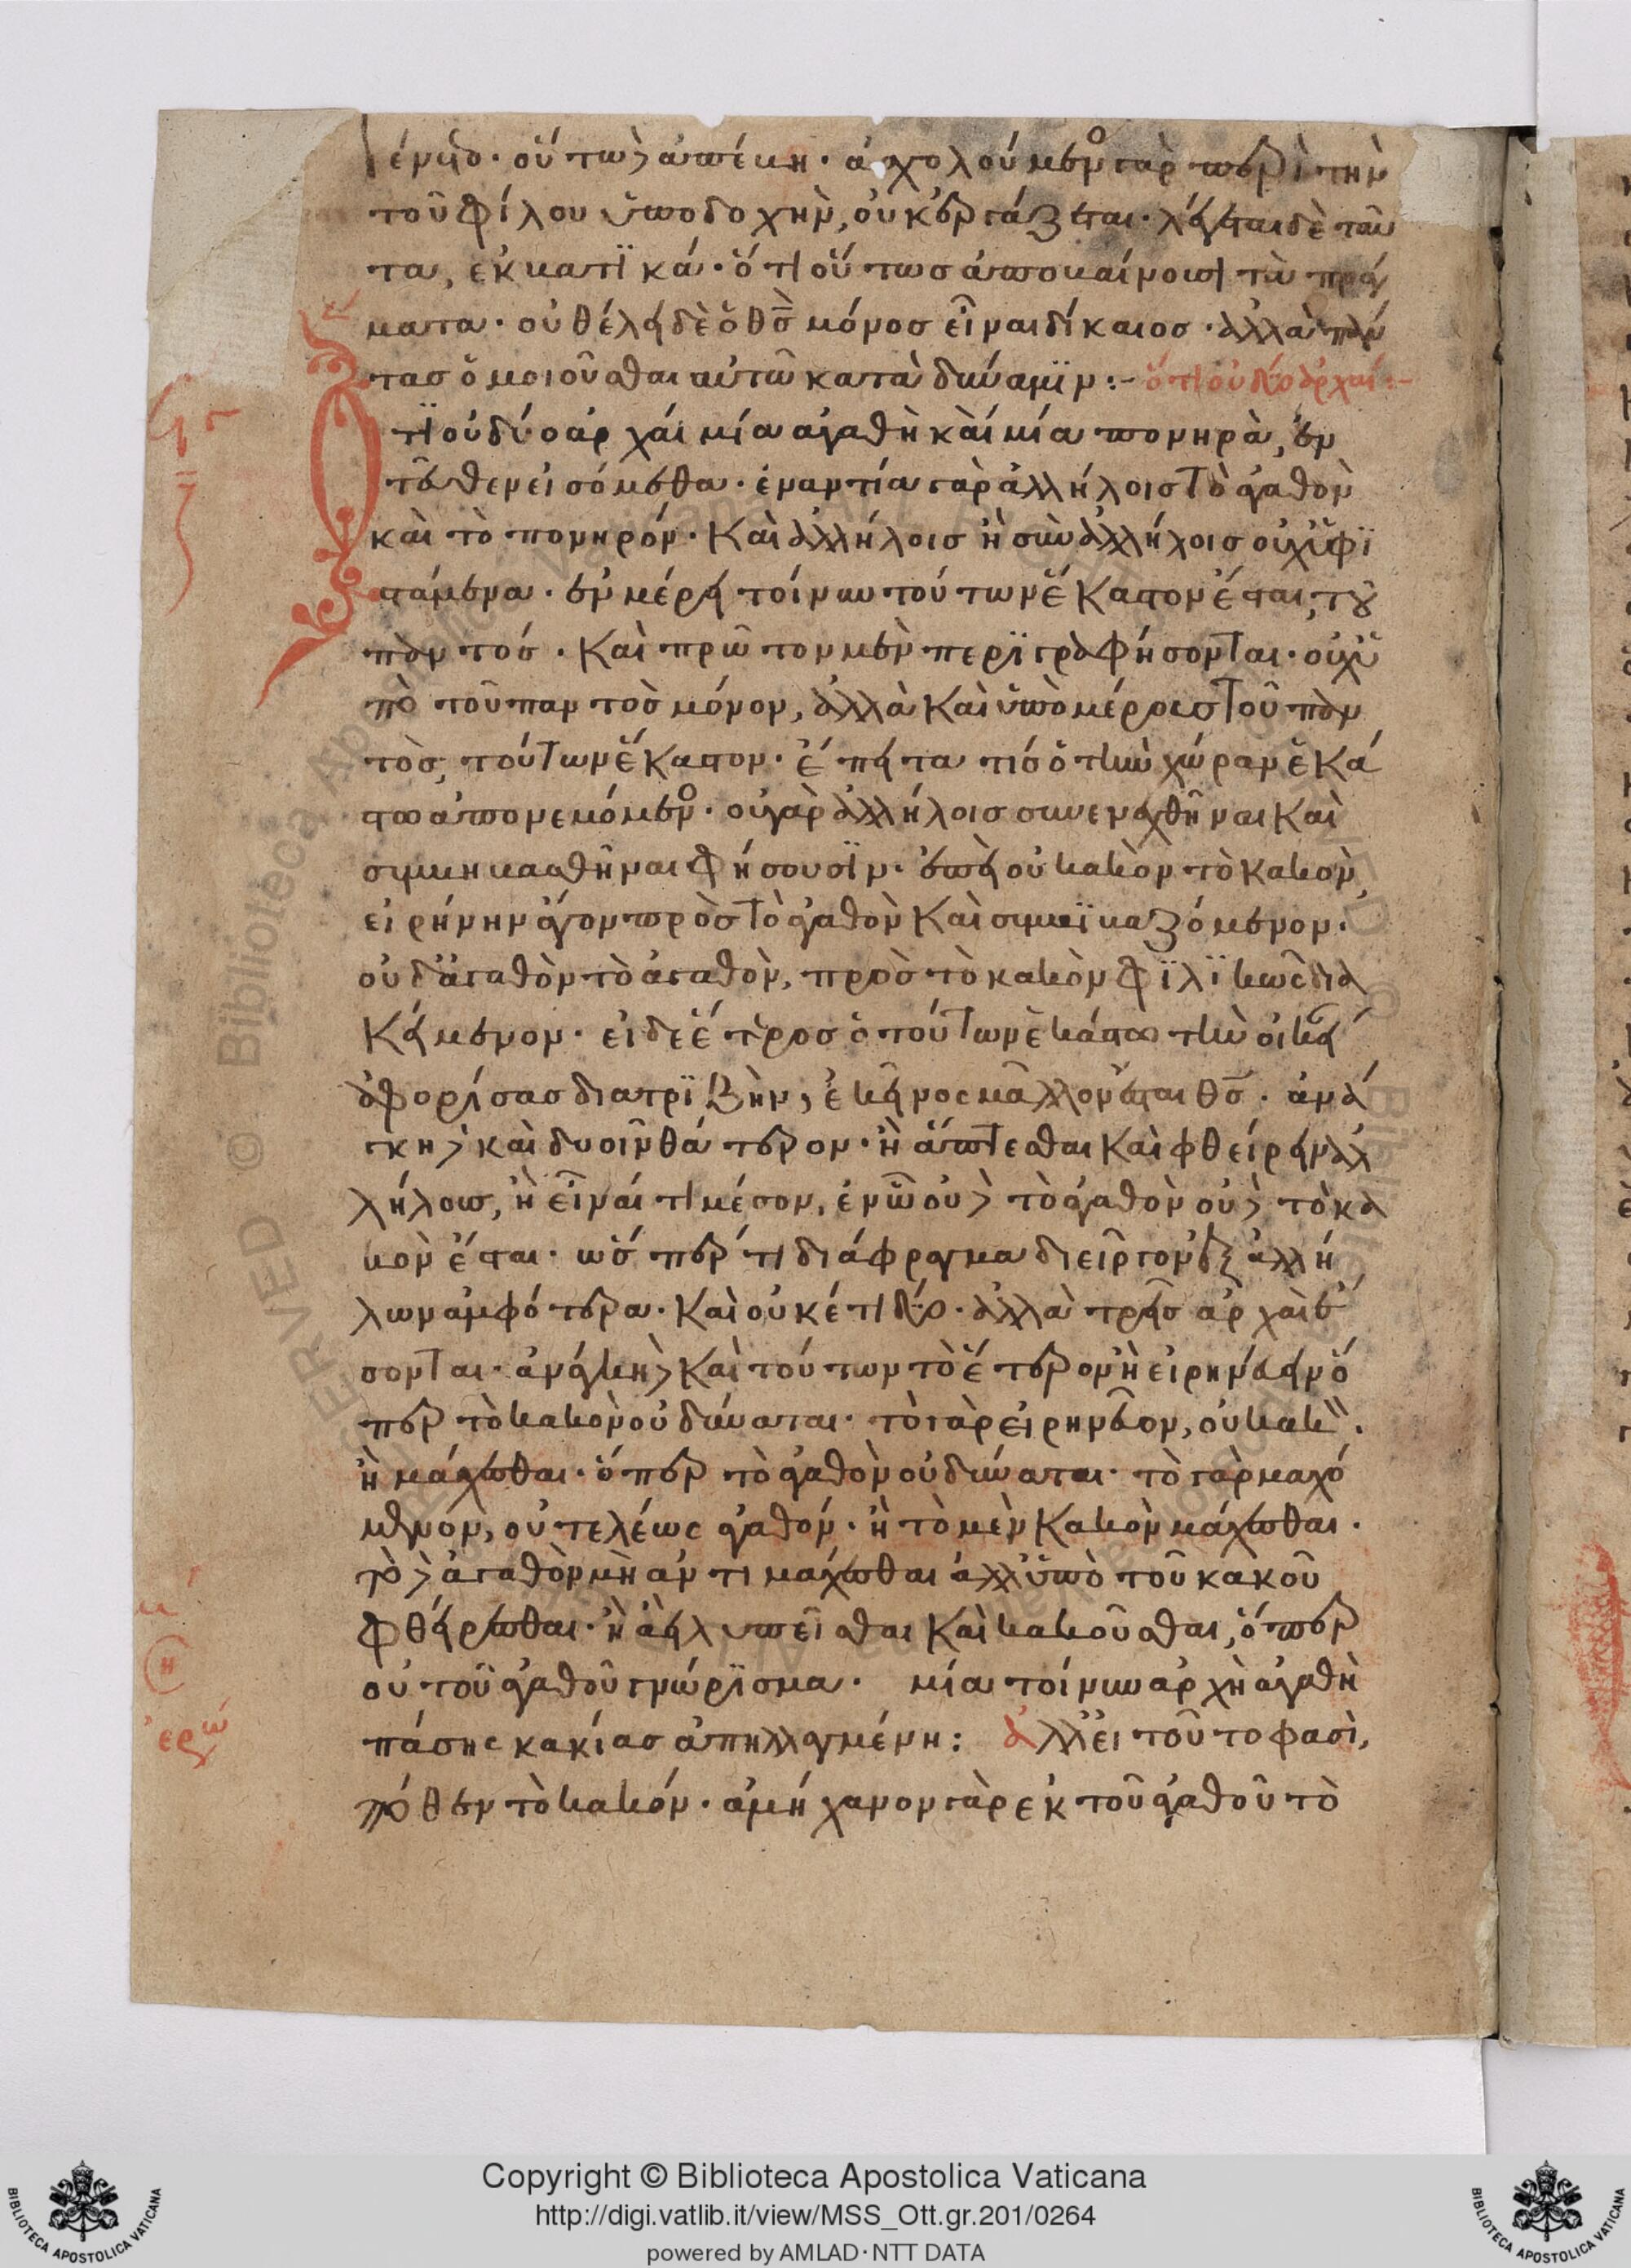 ένης· οὕτως ἀπέβη· ἀσχολούμενος γὰρ περὶ τὴν
τοῦ φίλου ὑποδοχὴν, οὐκ ἐργάζεται· λέγεται δὲ ταῦ
τα, ἐκβατϊκά· ὅτι οὕτως ἀποβαίνουσι τὰ πρά
ματα· οὐ θέλει δὲ ὁ θς μόνος εἶναι δίκαιος· ἀλλὰ πάν
τας ὁμοιοῦσθαι αὐτῶ κατὰ δύναμϊν:- ὅτι οὐ δύο ἀρχαί:-
Ὅτϊ οὐ δύο ἀρχαὶ μία ἀγαθὴ καὶ μία πονηρὰ, ἐν
τεῦθεν εἰσόμεθα· ἐναντία γὰρ ἀλλήλοις τὸ ἀγαθὸν
καὶ τὸ πονηρόν· Καὶ ἀλλήλοις ἢ σὺν ἀλλήλοις οὐχ ὑφϊ
στάμενα· ἐν μέρει τοίνυν τούτων ἕκαστον ἔσται, τοῦ
παντός· Καὶ πρῶτον μὲν περϊγραφήσονται· οὐχ ὑ
πὸ τοῦ παντὸς μόνον, ἀλλὰ Καὶ ὑπὸ μέρους τοῦ παν
τὸς, τούτων ἕκαστον· ἔπειτα τίς ὁ τὴν χώραν ἑκά
στω ἀπονεμόμενος· οὐ γὰρ ἀλλήλοις συνενεχθῆναι Καὶ
συμβηβασθῆναι φήσουσϊν· ἐπεὶ οὐ κακὸν τὸ κακὸν
εἰρήνην ἄγον πρὸς τὸ ἀγαθὸν Καὶ συμβϊβαζόμενον·
οὐδ' ἀγαθὸν τὸ ἀγαθὸν, πρὸς τὸ κακὸν φϊλϊκῶς δια
Κείμενον· εἰ δὲ ἕτερος ὁ τούτων ἑκάστω τὴν οἰκεί
ἀφορίσας διατρϊβὴν, ἐκεῖνος μᾶλλον ἔσται θς· ἀνάγ
κη δὲ καὶ δυοῖν θάτερον· ἢ ἅπτεσθαι Καὶ φθείρειν ἀλ
λήλους, ἢ εἶναί τι μέσον, ἐν ὧ οὐδὲ τὸ ἀγαθὸν οὐδὲ τὸ κα
κὸν ἔσται· ὥσπερ τι διάφραγμα διεῖργον ἐξ ἀλλή
λων ἀμφότερα· Καὶ οὐκέτι δύο· ἀλλὰ τρεῖς ἀρχαὶ ἔ
σονται· ἀνάγκη δὲ Καὶ τούτων τὸ ἕτερον ἢ εἰρηνεύειν ὅ
περ τὸ κακὸν οὐ δύναται· τὸ γὰρ εἰρηνεῦον, οὐ κακὸν·
ἢ μάχεσθαι· ὅπερ τὸ ἀγαθὸν οὐ δύναται· τὸ γὰρ μαχό
μενον, οὐ τελέως ἀγαθόν· ἢ τὸ μὲν Κακὸν μάχεσθαι·
τὸ δὲ ἀγαθὸν μὴ ἀντιμάχεσθαι ἀλλ' ὑπὸ τοῦ κακοῦ
φθείρεσθαι· ἢ ἀεὶ λυπεῖσθαι Καὶ κακοῦσθαι, ὅπερ
οὐ τοῦ ἀγαθοῦ γνώρϊσμα· μία τοίνυν ἀρχὴ ἀγαθὴ
πάσης κακίας ἀπηλλαγμένη: ἀλλ' εἰ τοῦτο φασὶ,
πόθεν τὸ κακόν· ἀμήχανον γὰρ ἐκ τοῦ ἀγαθοῦ τὸ
Copyright © Biblioteca Apostolica Vaticana
http://digi.vatlib.it/view/MSS_Ott.gr.201/0264
powered by AMLAD·NTT DATA
BIBLIOTECA APOSTOLICA VATICANA
BIBLIOTECA APOSTOLICA VATICANA